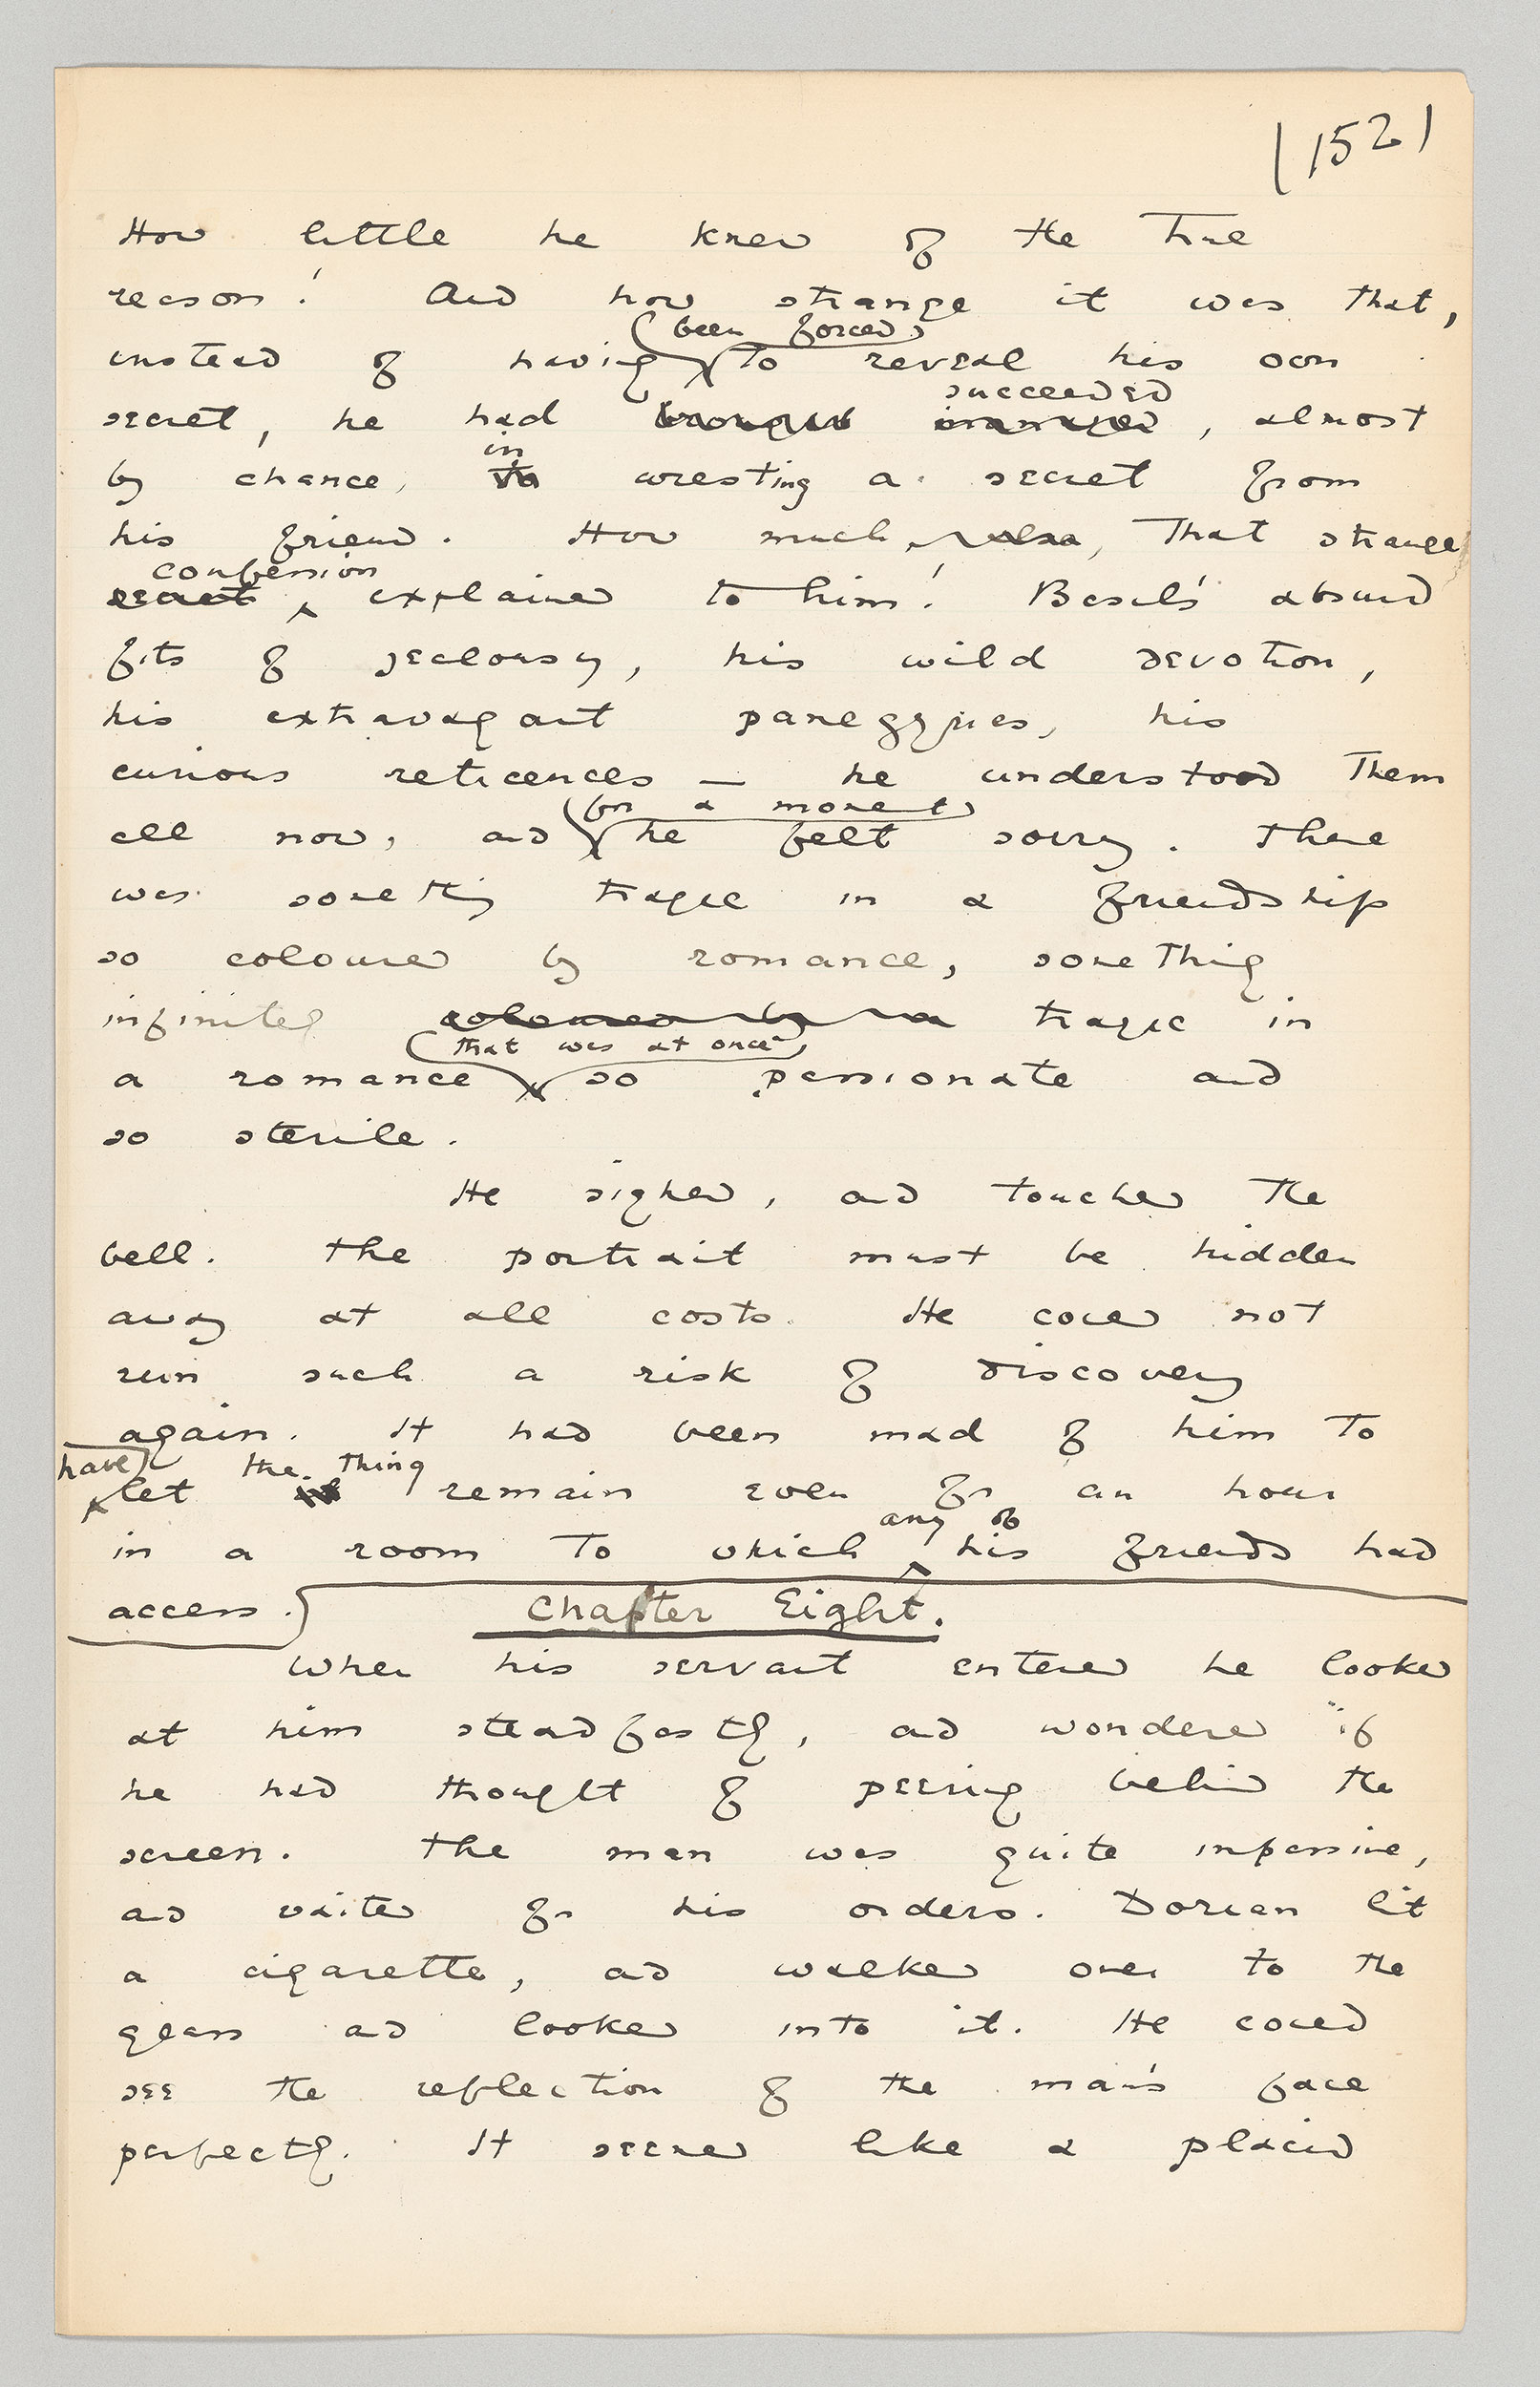 (152)
How little he knew of the true
reason! And how strange it was that,
been forced
instead of having to reveal his own
succeeded
secret, he had brought managed, almost
in
by chance, to wresting a secret from
his friend. How much, that strange
confession
secret explained to him! Basil's absurd
fits of jealousy, his wild devotion,
his extravagant panegyrics, his
curious reticences — he understood them
for a moment
all now, and he felt sorry. There
was something tragic in a friendship
so coloured by romance, something
infinitely coloured by tragic in
that was at once
a romance so passionate and
so sterile.
He sighed, and touched the
bell. The portrait must be hidden
away at all costs. He could not
run such a risk of discovery
again. It had been mad of him to
have the thing
let it remain even for an hour
any of
in a room to which his friends had
access. Chapter Eight.
When his servant entered he looked
at him steadfastly, and wondered if
he had thought of peering behind the
screen. The man was quite impassive,
and waited for his orders. Dorian lit
a cigarette, and walked over to the
glass and looked into it. He could
see the reflection of the man's face
perfectly. It seemed like a placid